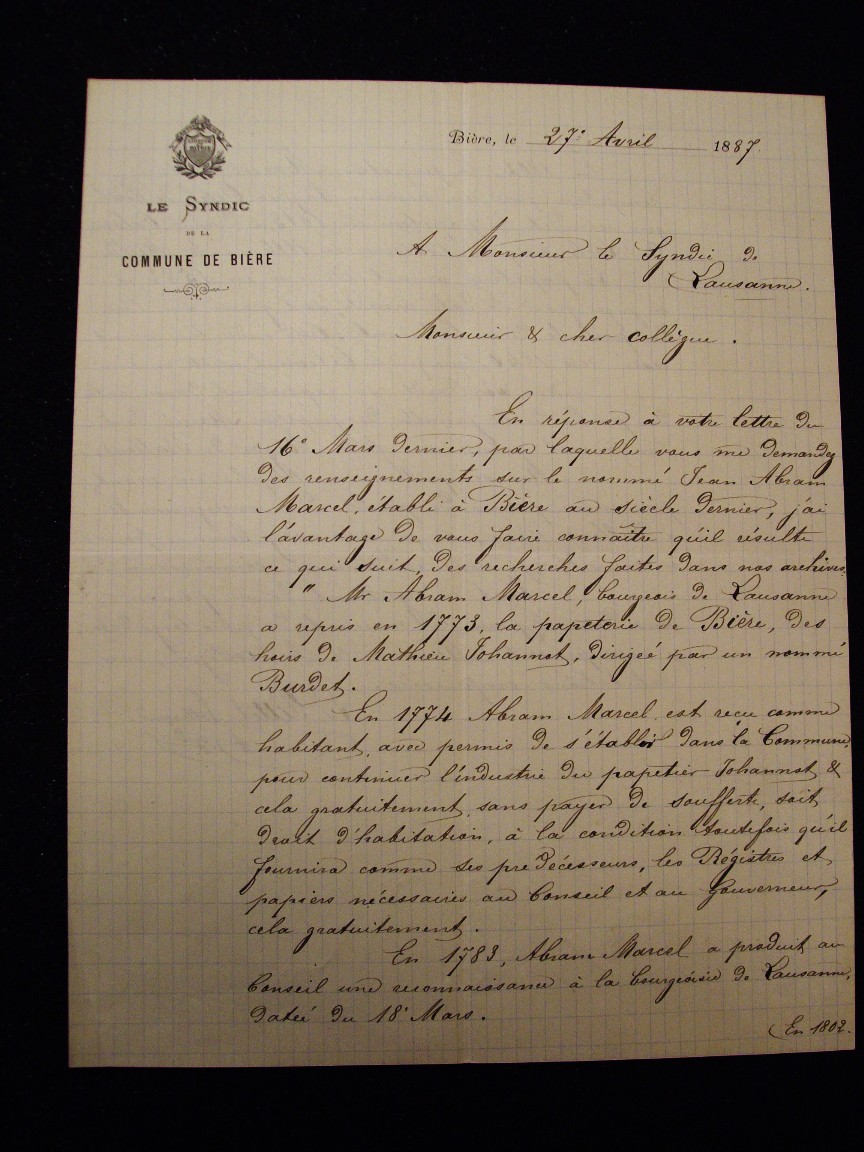 Bière, le 27e Avril 1887.
LE SYNDIC
DE LA
COMMUNE DE BIÈRE
A Monsieur le Syndic de
Lausanne.
Monsieur & cher collègue.
En réponse à votre lettre du
16e Mars dernier, par laquelle vous me demandez
des renseignements sur le nommé Jean Abram
Marcel, établi à Bière au siècle dernier, j'ai
l'avantage de vous faire connaître qu'il résulte
ce qui suit, des recherches faites dans nos archives:
" Mr Abram Marcel, bourgeois de Lausanne
a repris en 1773, la papeterie de Bière, des
hoirs de Mathieu Johannot, dirigeé par un nommé
Burdet.
En 1774 Abram Marcel est reçu comme
habitant, avec permis de s'établir dans la Commune,
pour continuer l'industrie du papetier Johannot &
cela gratuitement, sans payer de soufferte, soit
droit d'habitation, à la condition toutefois qu'il
fournira comme ses prédécesseurs, les Régistres et
papiers nécessaires au Conseil et au Gouverneur,
cela gratuitement.
En 1783, Abram Marcel a produit au
Conseil une reconnaissance à la bourgeoisie de Lausanne,
dateé du 18e Mars.
(En 1802.